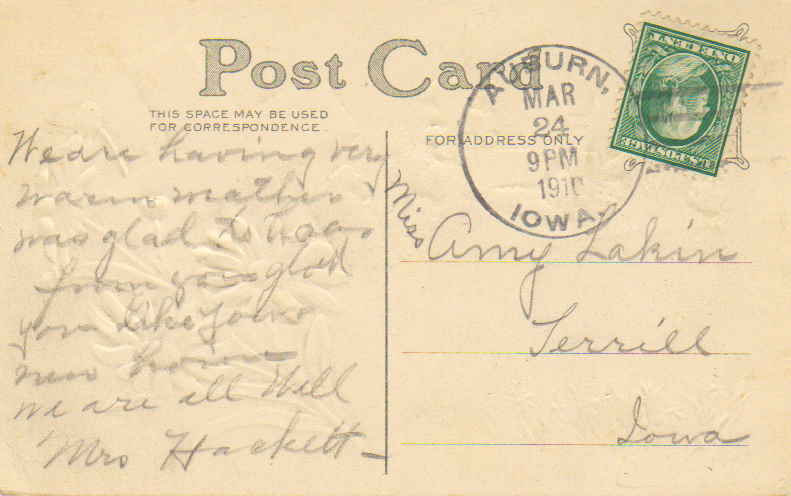 Post Card
THIS SPACE MAY BE USED
FOR CORRESPONDENCE.
FOR ADDRESS ONLY
AUBURN,
MAR
24
9PM
1910
IOWA.
ONE CENT
U.S. POSTAGE
We are having very
warm weather
was glad to hear
from you glad
you like your
new home
we are all Well
Mrs Hackett
Miss Amy Lakin
Terrill
Iowa